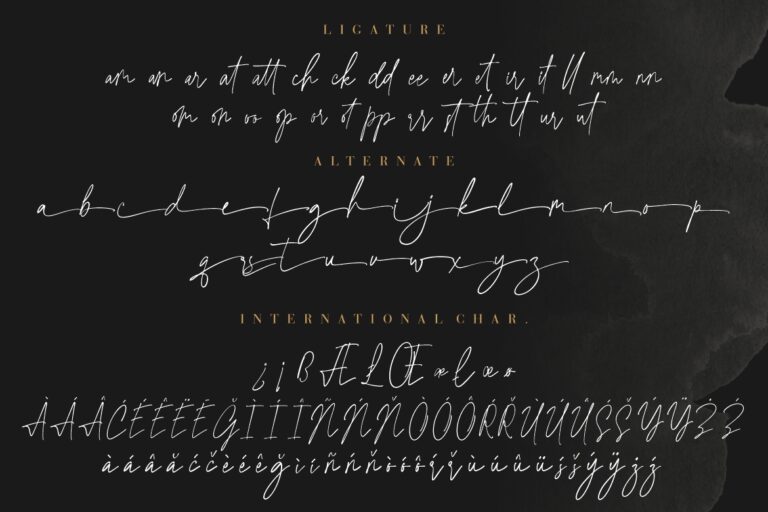 LIGATURE
am an ar at att ch ck dd ee er et ir it ll mm nn
om on oo op or ot pp rr st th tt ur ut
ALTERNATE
a b c d e f g h i j k l m n o p
q r s t u v w x y z
INTERNATIONAL CHAR.
¿ ¡ ß Æ Ł Œ æ ł œ ø
À Á Â Ć É Ê Ë È Ğ Ì Í Î Ñ Ń Ň Ò Ó Ô Ŕ Ř Ù Ú Û Ś Š Ý Ÿ Ż Ź
à á â ă ć č è é ê ğ ì í ñ ń ň ò ó ô ŕ ř ù ú û ü ś š ý ÿ ż ź